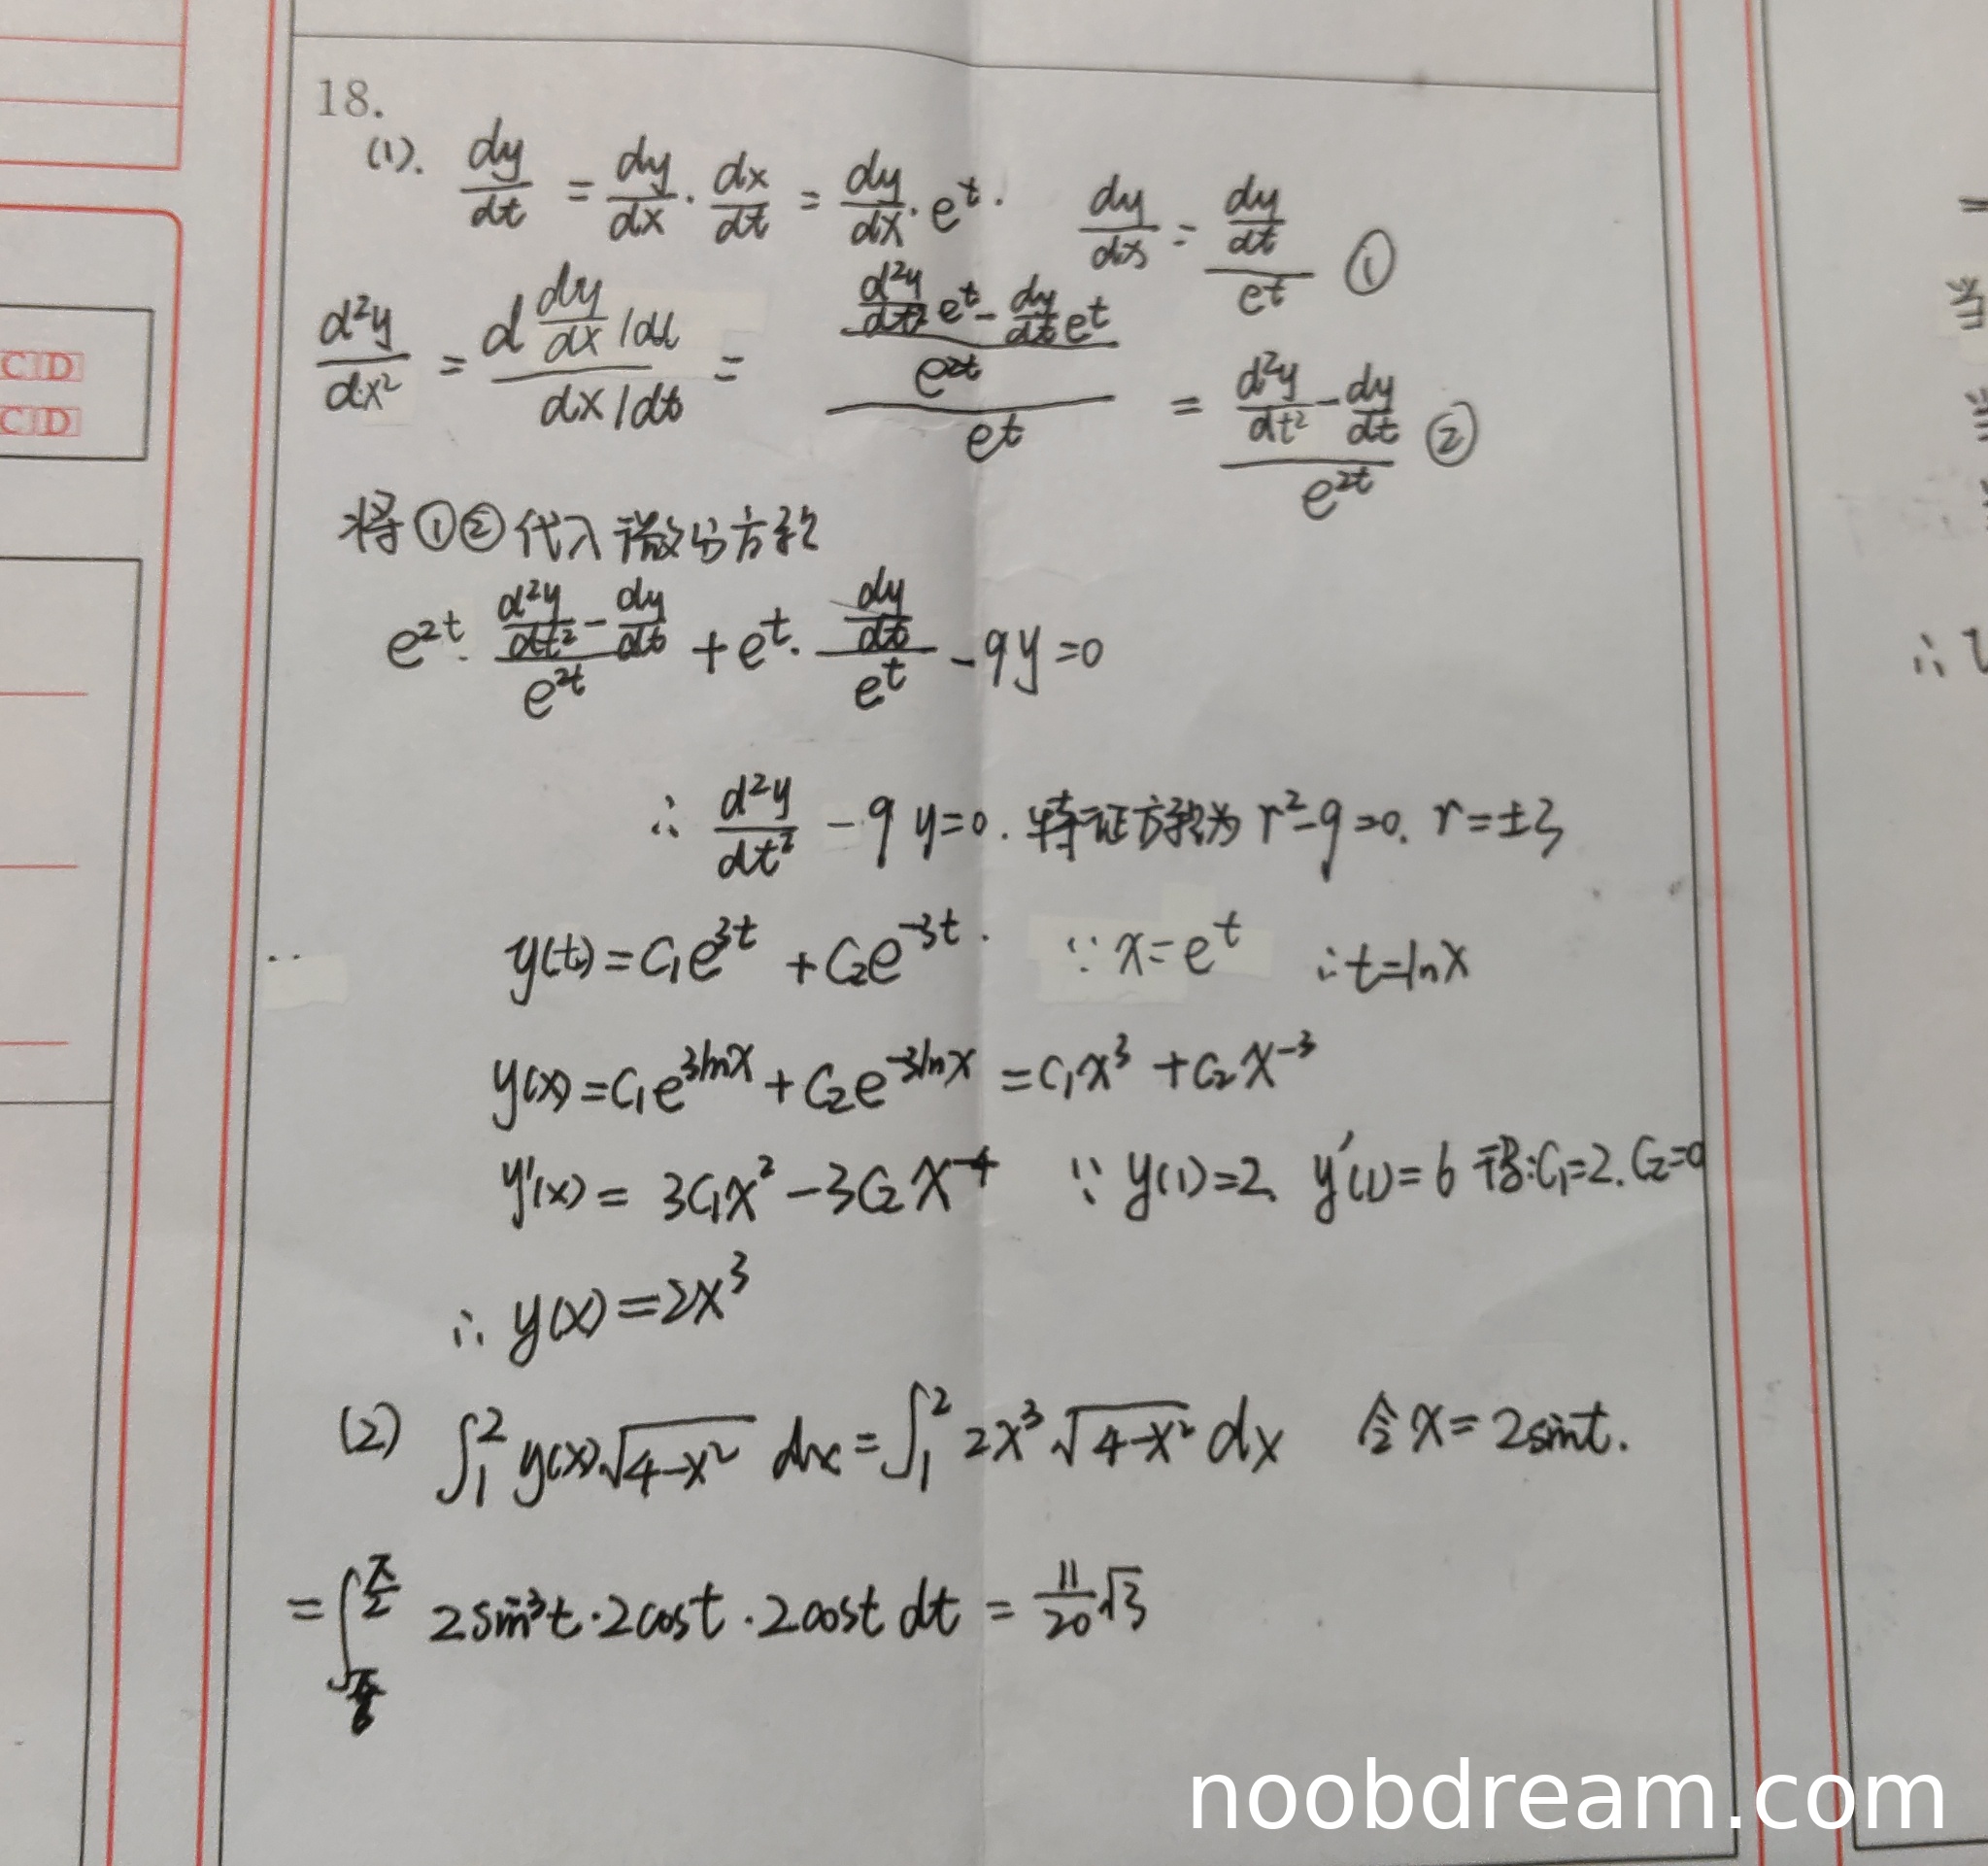 18.
(1). dy/dt = dy/dx · dx/dt = dy/dx · e^t. dy/dx = (dy/dt)/e^t ①
d²y/dx² = (d dy/dx /dt)/(dx/dt) = ((d²y/dt² e^t - dy/dt e^t)/e^2t)/e^t = (d²y/dt² - dy/dt)/e^2t ②
将①②代入微分方程
e^2t · (d²y/dt² - dy/dt)/e^2t + e^t · (dy/dt)/e^t - 9y=0
∴ d²y/dt² - 9y=0. 特征方程为 r²-9=0. r=±3
y(t)=C₁e^3t + C₂e^-3t. ∵ x=e^t ∴t=lnx
y(x)=C₁e^3lnx + C₂e^-3lnx = C₁x³ + C₂x^-3
y'(x) = 3C₁x² - 3C₂x^-4 ∵ y(1)=2. y'(1)=6 得:C₁=2. C₂=0
∴ y(x)=2x³
(2) ∫₁² y(x)√(4-x²) dx = ∫₁² 2x³√(4-x²) dx 令x=2sint.
= ∫_{π/6}^{π/2} 2sin³t·2cost·2cost dt = 11/20 √3
CD
CD
noobdream.com